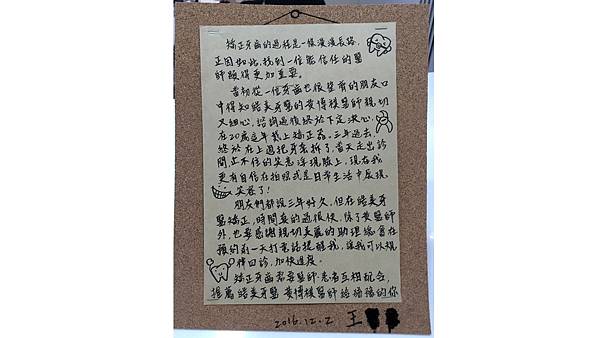 矯正牙齒的過程是一條漫漫長路,
正因如此,找到一位能信任的醫
師顯得更加重要。
當初從一位牙齒也很整齊的朋友口
中得知皓美牙醫的黃傳楼醫師親切
又細心,諮詢過後終於下定決心,
在20歲這年戴上矯正器。三年過去,
終於在上週把牙套拆了,當天走出診
間,止不住的笑意浮現臉上,現在我
更有自信在拍照或是日常生活中展現
笑容了!
朋友們都說三年好久,但在皓美牙
醫矯正,時間真的過很快,除了黃醫師
外,也要感謝親切美麗的助理總會在
預約前一天打電話提醒我,讓我可以規
律回診,加快進度。
矯正牙齒需要醫師患者互相配合,
推薦皓美牙醫 黃傳楼醫師給猶豫的你
2016.12.2 王